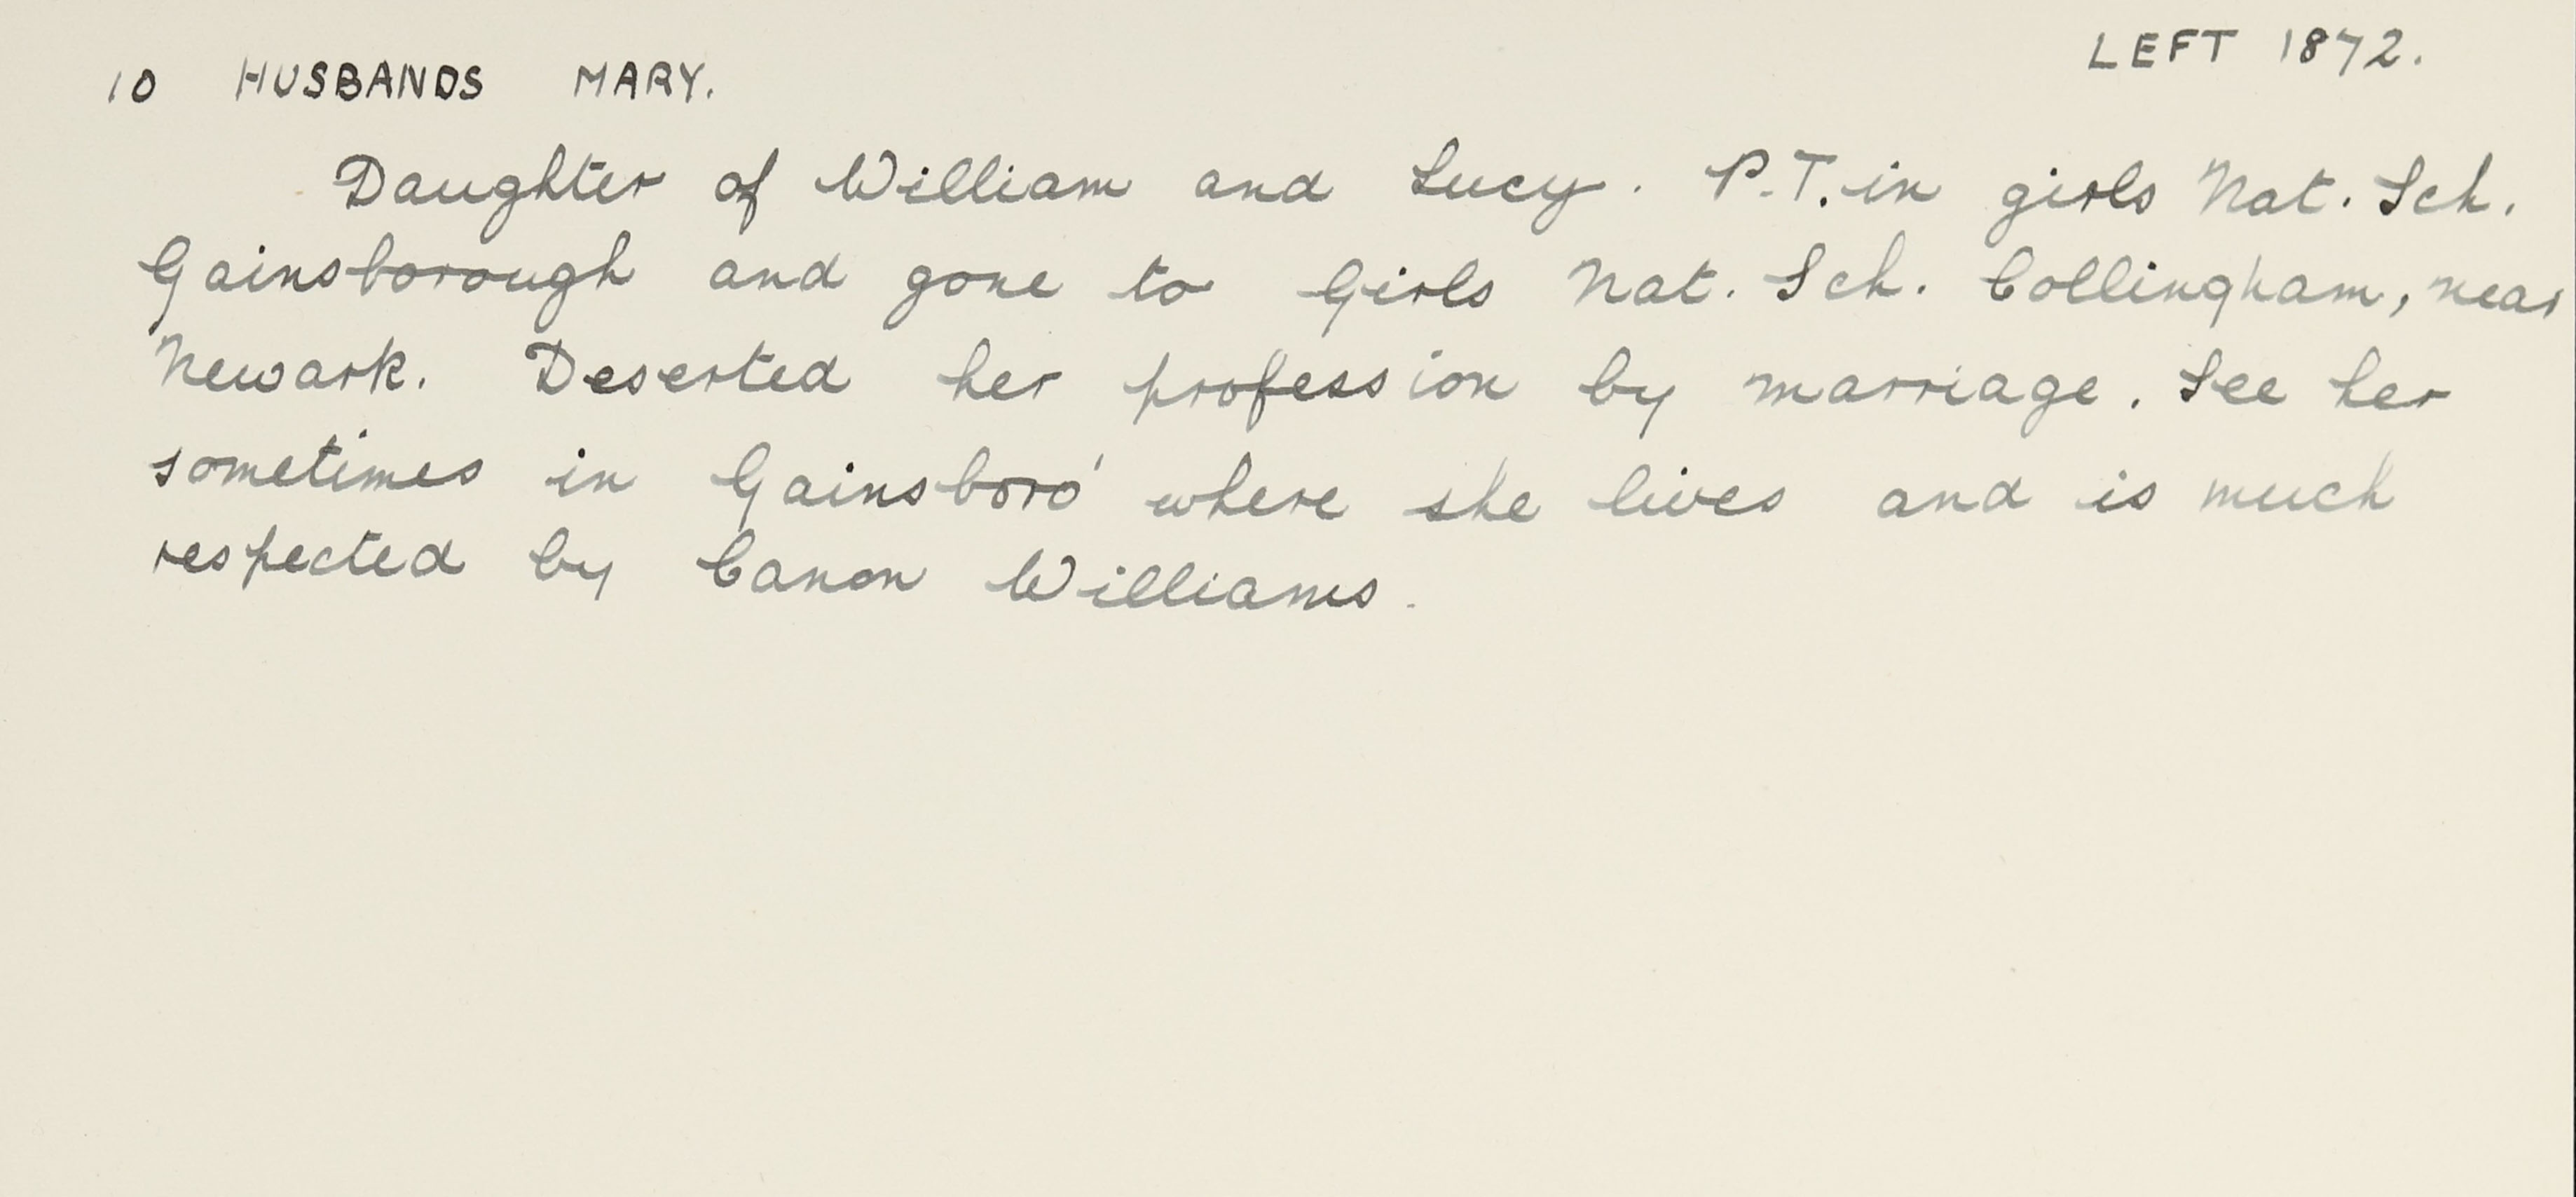 10 HUSBANDS MARY. LEFT 1872.
Daughter of William and Lucy. P.T. in girls Nat. Sch.
Gainsborough and gone to Girls Nat. Sch. Collingham, near
Newark. Deserted her profession by marriage. See her
sometimes in Gainsboro' where she lives and is much
respected by Canon Williams.